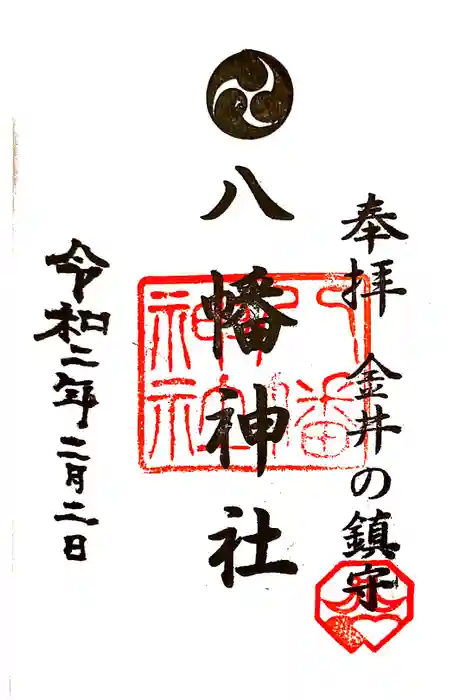 奉拝 金井の鎮守
八幡神社
令和二年二月二日